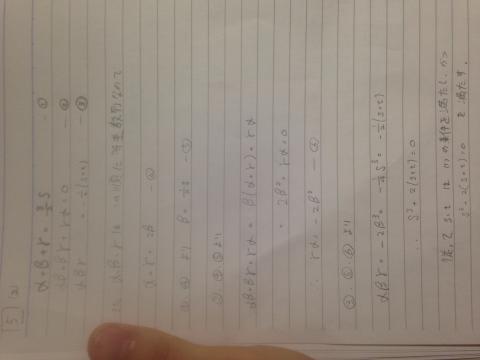 5 (2)
α+β+γ = 3/2 s —①
αβ+βγ+γα = 0 —②
αβγ = -1/2(s+t) —③
α, β, γ は この順に等差数列なので
α+γ = 2β —④
①, ④ より β = 1/2 s —⑤
②, ④, ⑤ より
αβ+βγ+γα = β(α+γ)+γα
= 2β²+γα = 0
∴ γα = -2β² —⑥
③, ⑤, ⑥ より
αβγ = -2β³ = -1/4 s³ = -1/2(s+t)
∴ s³ - 2(s+t) = 0
従って s, t は (1) の条件を満たし、かつ
s³ - 2(s+t) = 0 を満たす。